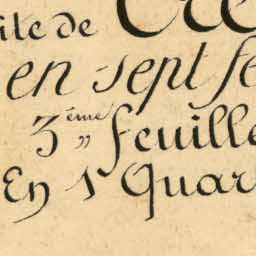 ile de Cre
en sept fe
3ème feuille
En 1 Quar